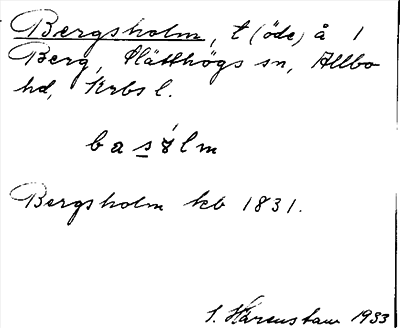 Bergsholm, t (öde) å 1
Berg, Slätthögs sn, Allbo
hd, Krbs l.
Bergsholm kb 1831.
S. Härenstam 1933